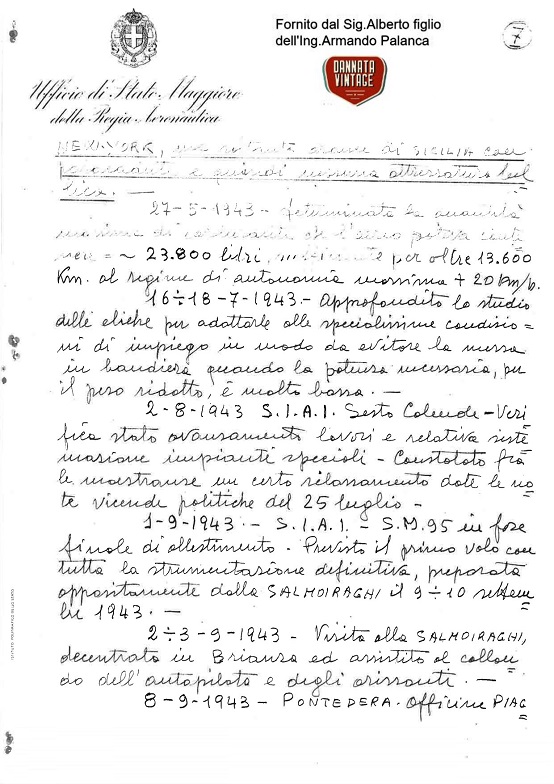 Fornito dal Sig.Alberto figlio
dell'Ing.Armando Palanca
7
DANNATA
VINTAGE
Ufficio di Stato Maggiore
della Regia Aeronautica
NEW-YORK, di SICILIA con
paracadute e quindi nessuna attrezzatura bel
lica. —
27-5-1943 - determinata la quantità
massima di carburante che l'aereo poteva conte
nere = ~ 23.800 litri, sufficiente per oltre 13.600
Km. al regime di autonomia massima + 20 Km/h.
16÷18-7-1943.- Approfondito lo studio
delle eliche per adattarle alle specialissime condizio=
ni di impiego in modo da evitare la messa
in bandiera quando la potenza necessaria, per
il peso ridotto, è molto bassa. —
2-8-1943 S.I.A.I. Sesto Calende - Veri
fica stato avanzamento lavori e relativa siste
mazione impianti speciali - Constatato fra
le maestranze un certo rilassamento date le no
te vicende politiche del 25 luglio -
1-9-1943 - S.I.A.I. - S.M.95 in fase
finale di allestimento. Previsto il primo volo con
tutta la strumentazione definitiva, preparata
appositamente dalla SALMOIRAGHI il 9÷10 settem
bre 1943. —
2÷3-9-1943 - Visita alla SALMOIRAGHI,
decentrata in Brianza ed assistito al collau
do dell'autopilota e degli orizzonti. —
8-9-1943 - PONTEDERA. Officine PIAG